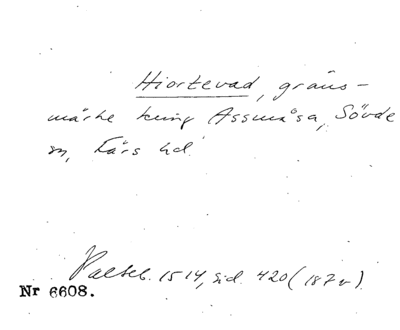 Hiortevad, gräns-
märke kring Assmåsa, Sövde
sn, Färs hd.
Palteb. 1514, sid. 420 (187 v).
Nr 6608.